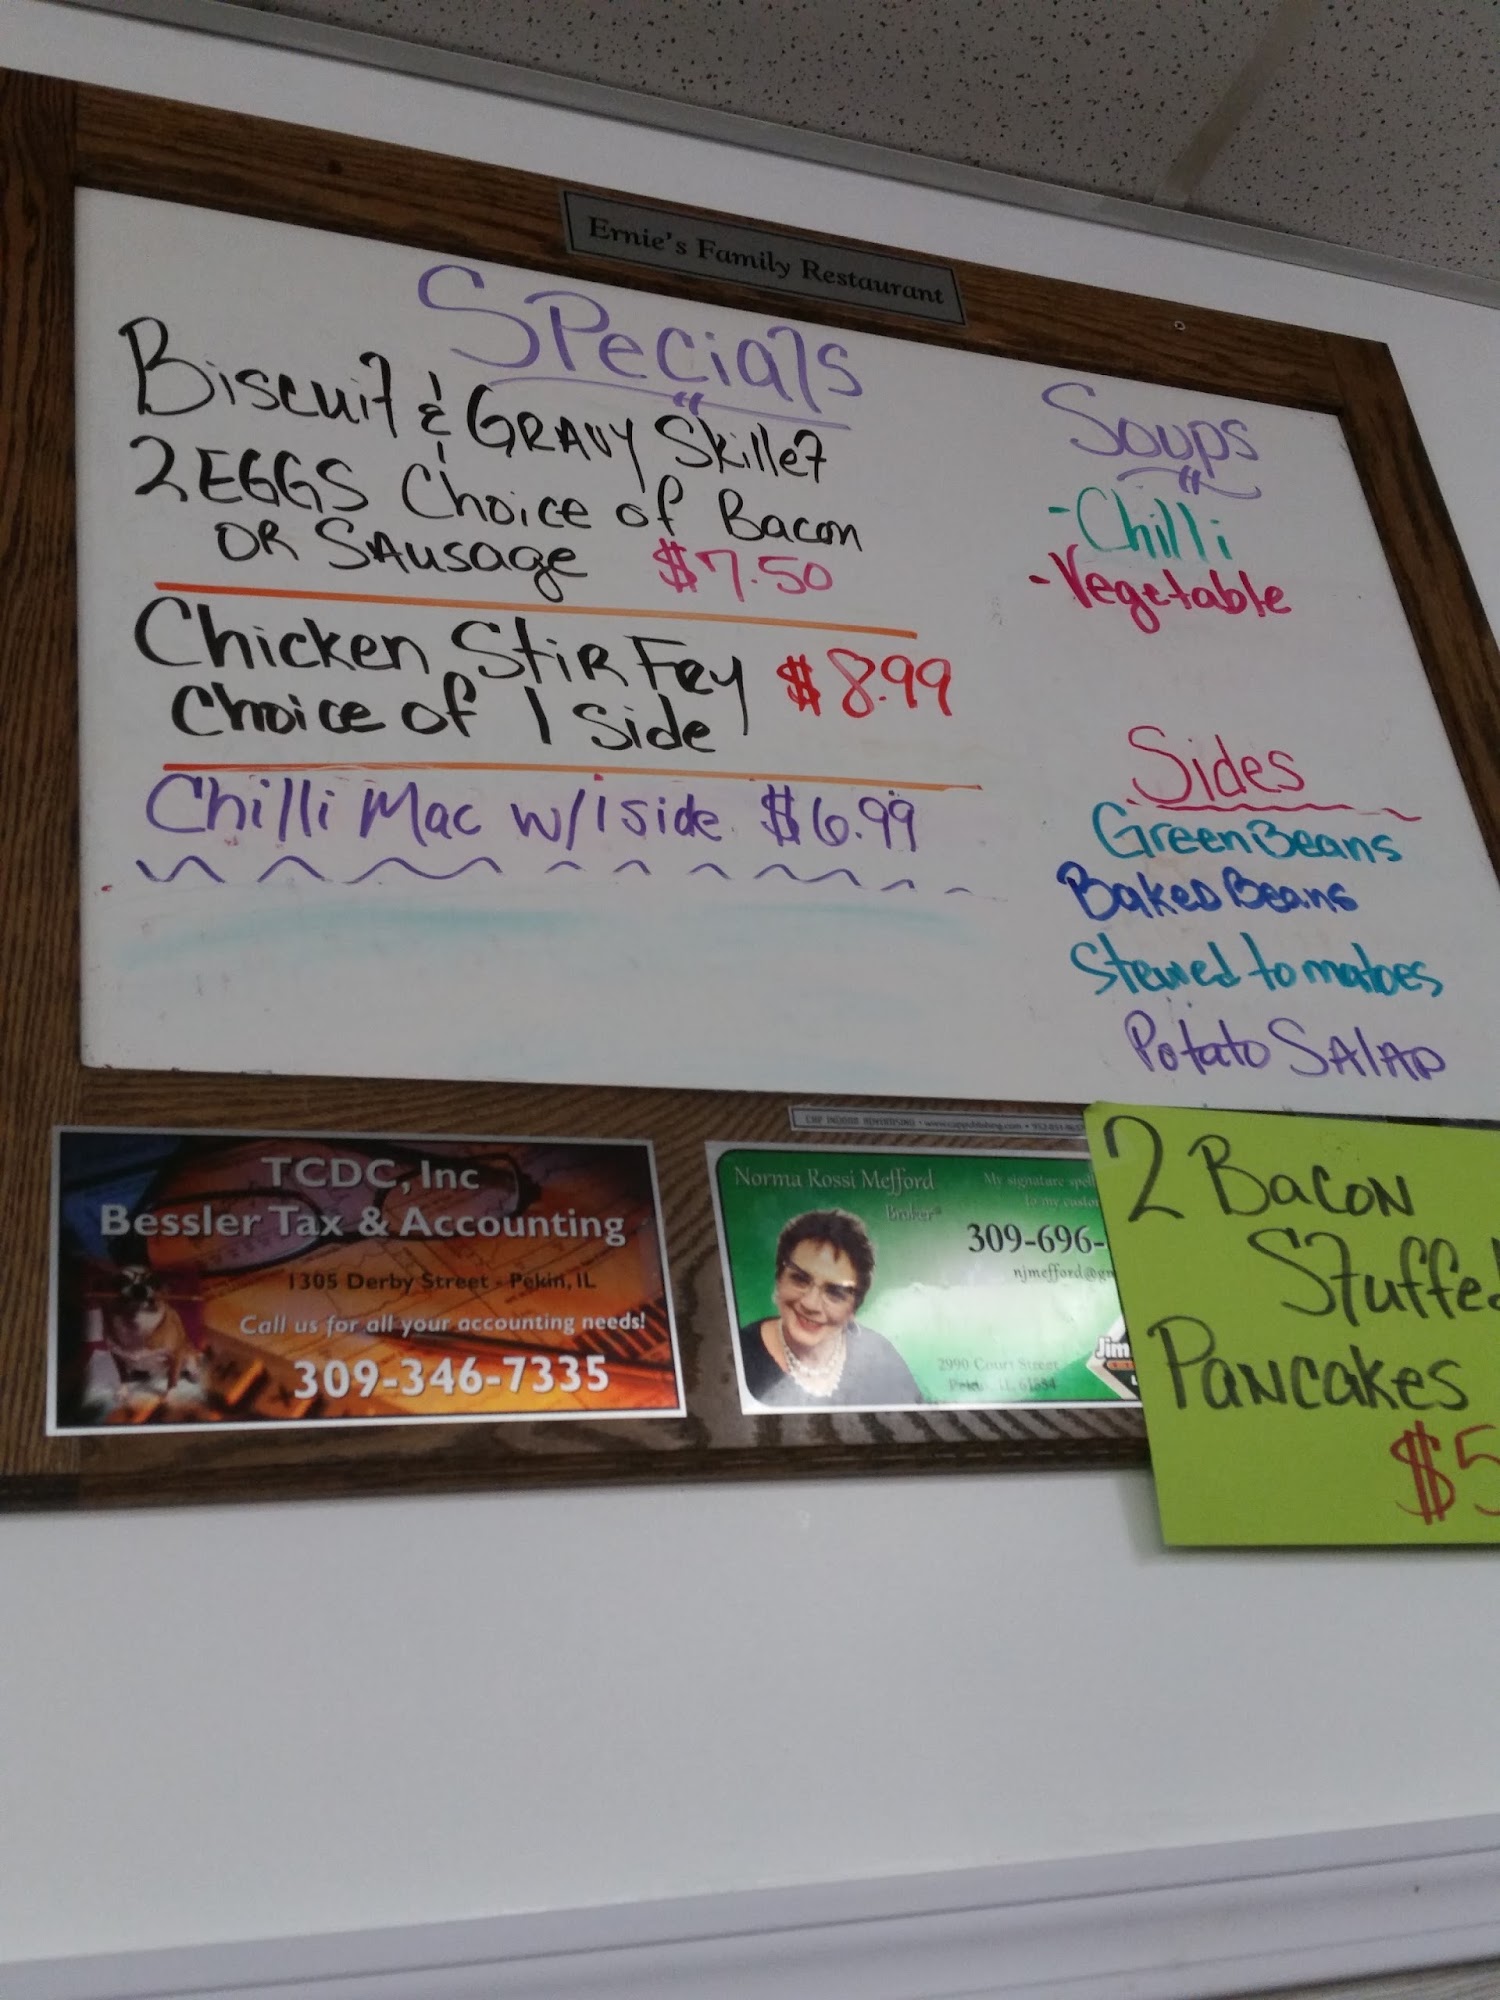 Ernie's Family Restaurant
Specials
Biscuit & Gravy Skillet
2 EGGS Choice of Bacon
OR SAusage $7.50
Chicken Stir Fry $8.99
Choice of 1 side
Chilli Mac w/1 side $6.99
Soups
- Chilli
- Vegetable
Sides
Green Beans
Baked Beans
Stewed tomatoes
Potato SAlAD
TCDC, Inc
Bessler Tax & Accounting
1305 Derby Street - Pekin, IL
Call us for all your accounting needs!
309-346-7335
Norma Rossi Mefford
Broker
My signature
to my
309-696-
njmefford@
2990 Court Street
Pekin, IL 61554
Jim
2 Bacon
Stuffed
Pancakes
$5